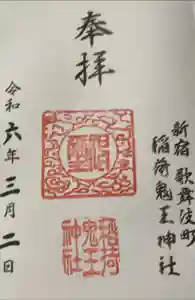 奉拝
新宿歌舞伎町
稲荷鬼王神社
稲荷
鬼王
神社
令和六年三月二日